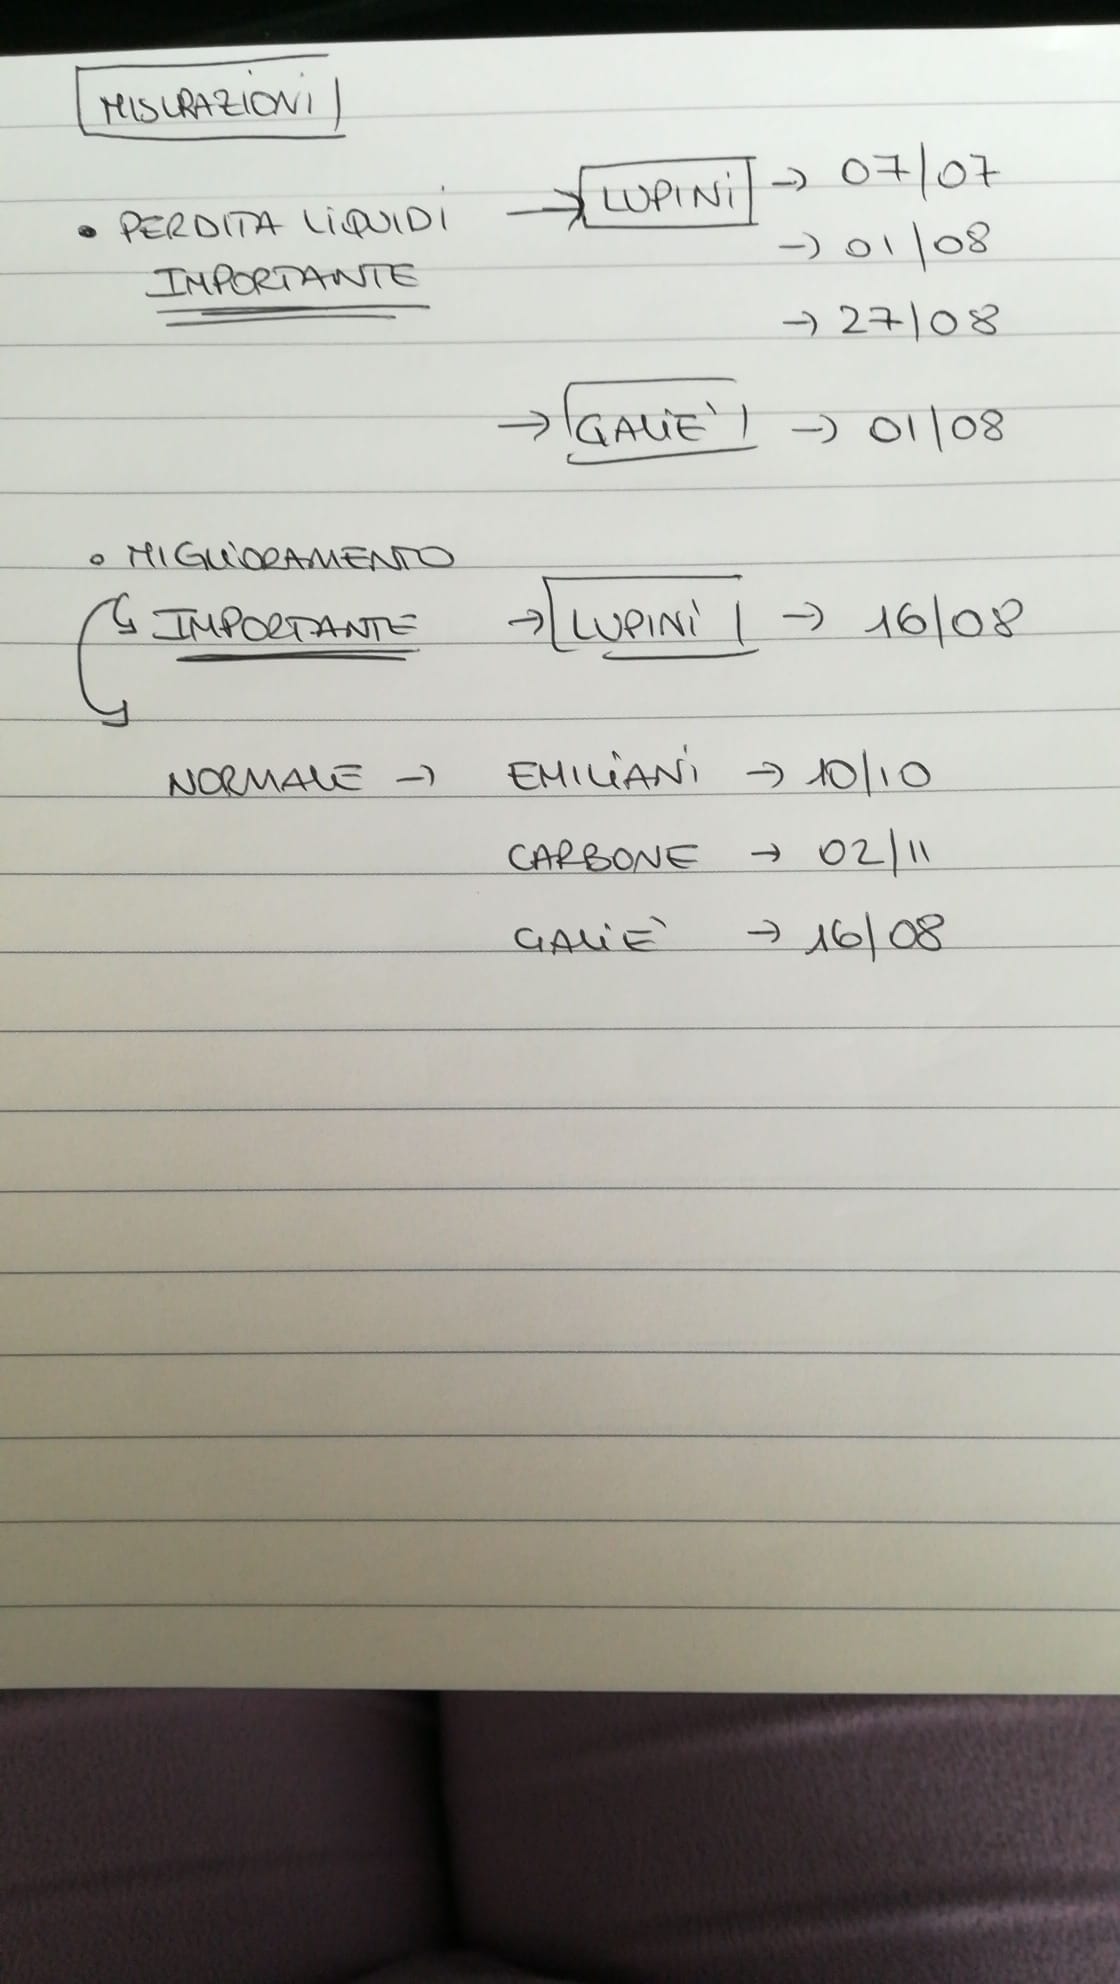 MISURAZIONI
• PERDITA LIQUIDI → LUPINI → 07/07
IMPORTANTE → 01/08
→ 27/08
→ GALIE' → 01/08
• MIGLIORAMENTO
↳ IMPORTANTE → LUPINI → 16/08
↳ NORMALE → EMILIANI → 10/10
CARBONE → 02/11
GALIE' → 16/08